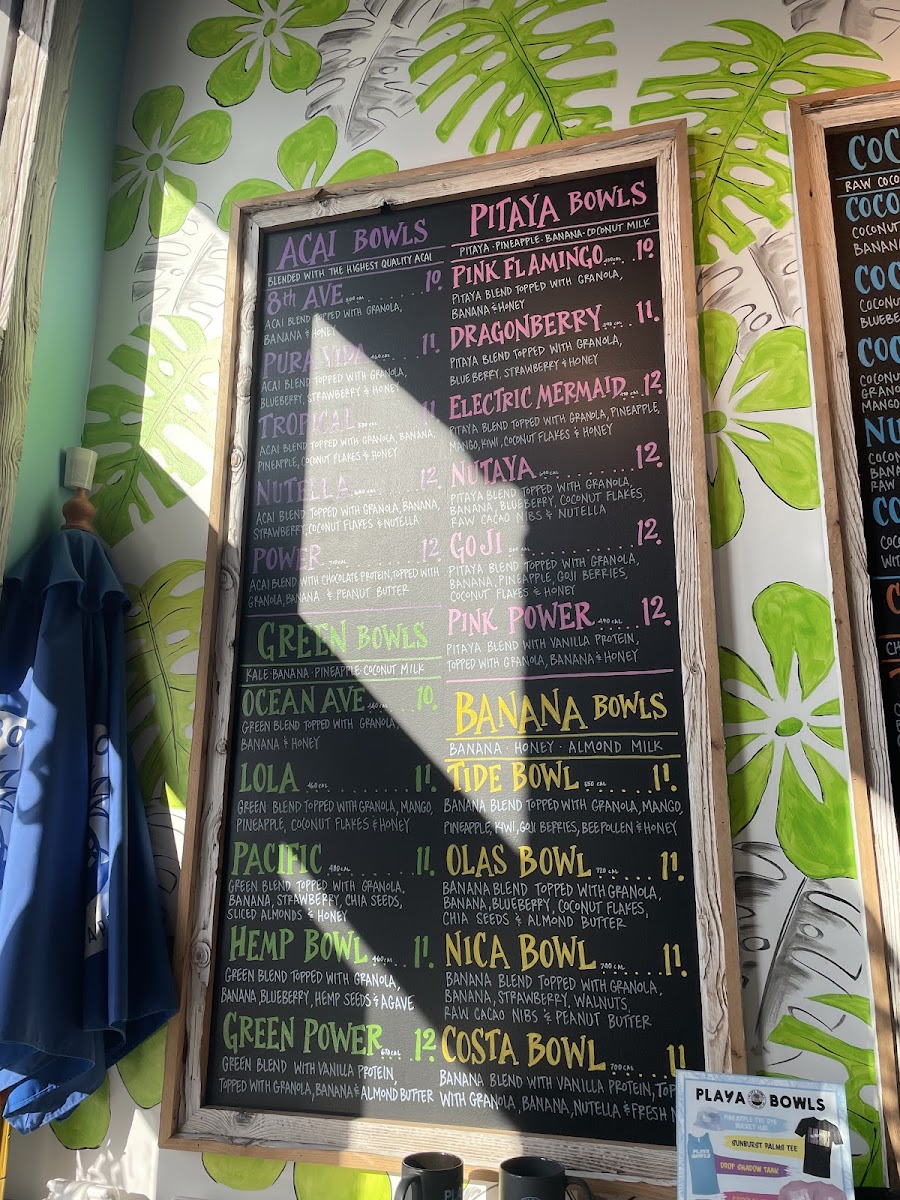 ACAI BOWLS
BLENDED WITH THE HIGHEST QUALITY ACAI
8th AVE 10.
ACAI BLEND TOPPED WITH GRANOLA,
BANANA & HONEY
PURA VIDA 11.
ACAI BLEND TOPPED WITH GRANOLA,
BLUEBERRY, STRAWBERRY & HONEY
TROPICAL 11
ACAI BLEND TOPPED WITH GRANOLA, BANANA,
PINEAPPLE, COCONUT FLAKES & HONEY
NUTELLA 12
ACAI BLEND TOPPED WITH GRANOLA, BANANA,
STRAWBERRY, COCONUT FLAKES & NUTELLA
POWER 12
ACAI BLEND WITH CHOCOLATE PROTEIN, TOPPED WITH
GRANOLA, BANANA & PEANUT BUTTER
GREEN BOWLS
KALE·BANANA·PINEAPPLE·COCONUT MILK
OCEAN AVE 10.
GREEN BLEND TOPPED WITH GRANOLA,
BANANA & HONEY
LOLA 460 CAL 11.
GREEN BLEND TOPPED WITH GRANOLA, MANGO,
PINEAPPLE, COCONUT FLAKES & HONEY
PACIFIC 480 CAL 11.
GREEN BLEND TOPPED WITH GRANOLA,
BANANA, STRAWBERRY, CHIA SEEDS,
SLICED ALMONDS & HONEY
HEMP BOWL 460 CAL 11.
GREEN BLEND TOPPED WITH GRANOLA,
BANANA, BLUEBERRY, HEMP SEEDS & AGAVE
GREEN POWER 670 CAL 12
GREEN BLEND WITH VANILLA PROTEIN,
TOPPED WITH GRANOLA, BANANA & ALMOND BUTTER
PITAYA BOWLS
PITAYA·PINEAPPLE·BANANA·COCONUT MILK
PINK FLAMINGO 10.
PITAYA BLEND TOPPED WITH GRANOLA,
BANANA & HONEY
DRAGONBERRY 11.
PITAYA BLEND TOPPED WITH GRANOLA,
BLUEBERRY, STRAWBERRY & HONEY
ELECTRIC MERMAID 12.
PITAYA BLEND TOPPED WITH GRANOLA, PINEAPPLE,
MANGO, KIWI, COCONUT FLAKES & HONEY
NUTAYA 12.
PITAYA BLEND TOPPED WITH GRANOLA,
BANANA, BLUEBERRY, COCONUT FLAKES,
RAW CACAO NIBS & NUTELLA
GOJI 12.
PITAYA BLEND TOPPED WITH GRANOLA,
BANANA, PINEAPPLE, GOJI BERRIES,
COCONUT FLAKES & HONEY
PINK POWER 12.
PITAYA BLEND WITH VANILLA PROTEIN,
TOPPED WITH GRANOLA, BANANA & HONEY
BANANA BOWLS
BANANA · HONEY · ALMOND MILK
TIDE BOWL 550 CAL 11.
BANANA BLEND TOPPED WITH GRANOLA, MANGO,
PINEAPPLE, KIWI, GOJI BERRIES, BEE POLLEN & HONEY
OLAS BOWL 720 CAL 11.
BANANA BLEND TOPPED WITH GRANOLA,
BANANA, BLUEBERRY, COCONUT FLAKES,
CHIA SEEDS & ALMOND BUTTER
NICA BOWL 700 CAL 11.
BANANA BLEND TOPPED WITH GRANOLA,
BANANA, STRAWBERRY, WALNUTS,
RAW CACAO NIBS & PEANUT BUTTER
COSTA BOWL 700 CAL 11
BANANA BLEND WITH VANILLA PROTEIN, TOP
WITH GRANOLA, BANANA, NUTELLA & FRESH
RAW COCO
COCO
COCONUT
BANAN
COC
COCONUT
BLUEBE
COC
COCONUT
GRANO
MANGO
NU
COCON
BANA
RAW
CO
COCO
WIT
PLAYA BOWLS
PINEAPPLE TIE DYE
BUCKET HAT
SUNBURST PALMS TEE
DROP SHADOW TANK